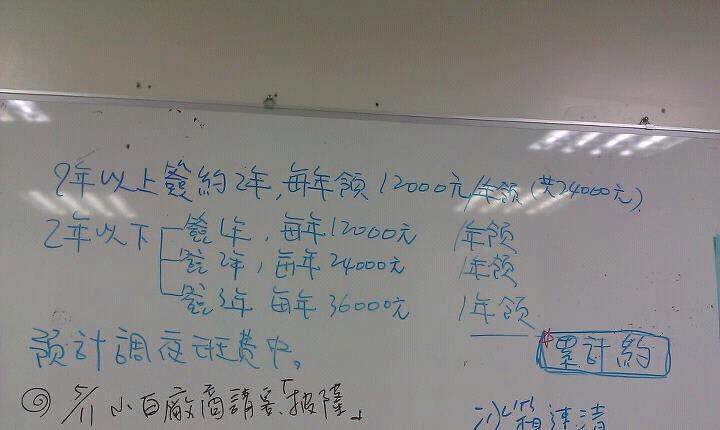 2年以上簽約2年,每年領12000元/年領(共24000元)
2年以下 簽1年,每年12000元 1年領
簽2年,每年24000元 1年領
簽3年 每年36000元 1年領
預計調夜班費中。
*累計約
◎ 5/11 小白廠商請客「披薩」
冰箱速清